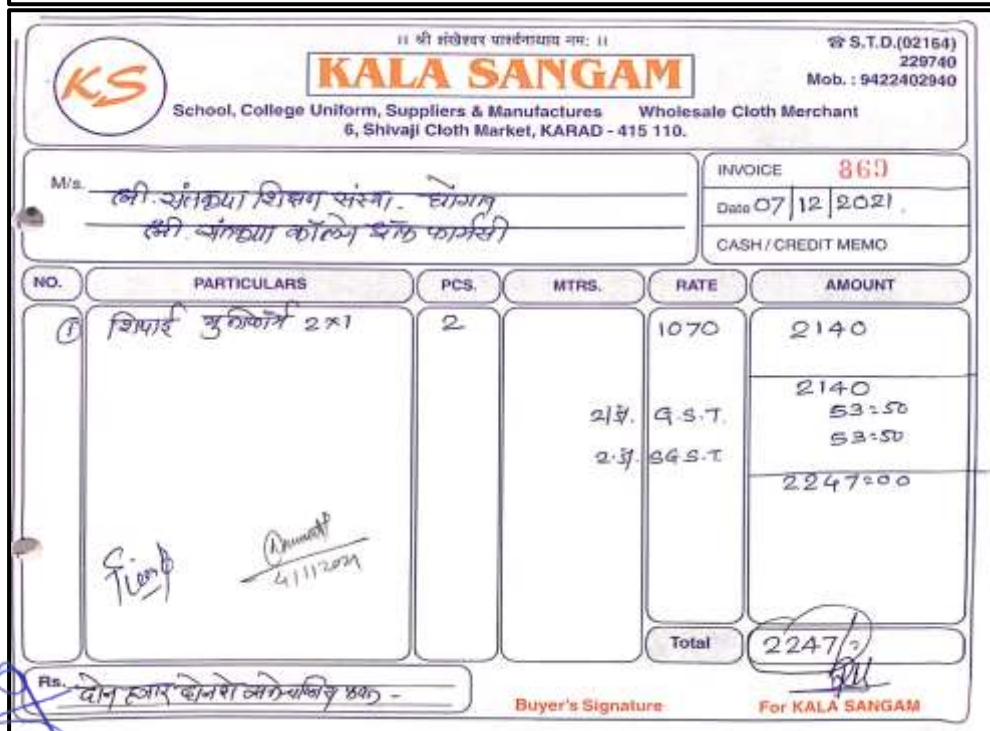 ॥ श्री शंखेश्वर पार्श्वनाथाय नमः ॥
☎ S.T.D.(02164)
229740
Mob. : 9422402940
KS
KALA SANGAM
School, College Uniform, Suppliers & Manufactures Wholesale Cloth Merchant
6, Shivaji Cloth Market, KARAD - 415 110.
M/s. श्री. संतकृपा शिक्षण संस्था. घोगाव
श्री. संतकृपा कॉलेज ऑफ फार्मसी
INVOICE 869
Date 07/12/2021.
CASH / CREDIT MEMO
NO. PARTICULARS PCS. MTRS. RATE AMOUNT
① शिपाई युनिफॉर्म 2×1 2 1070 2140
2140
G.S.T. 53=50
SGS.T 53=50
2247=00
4/1/2021
Total 2247/=
Rs. दोन हजार दोनशे सत्तेचाळीस -
Buyer's Signature
For KALA SANGAM